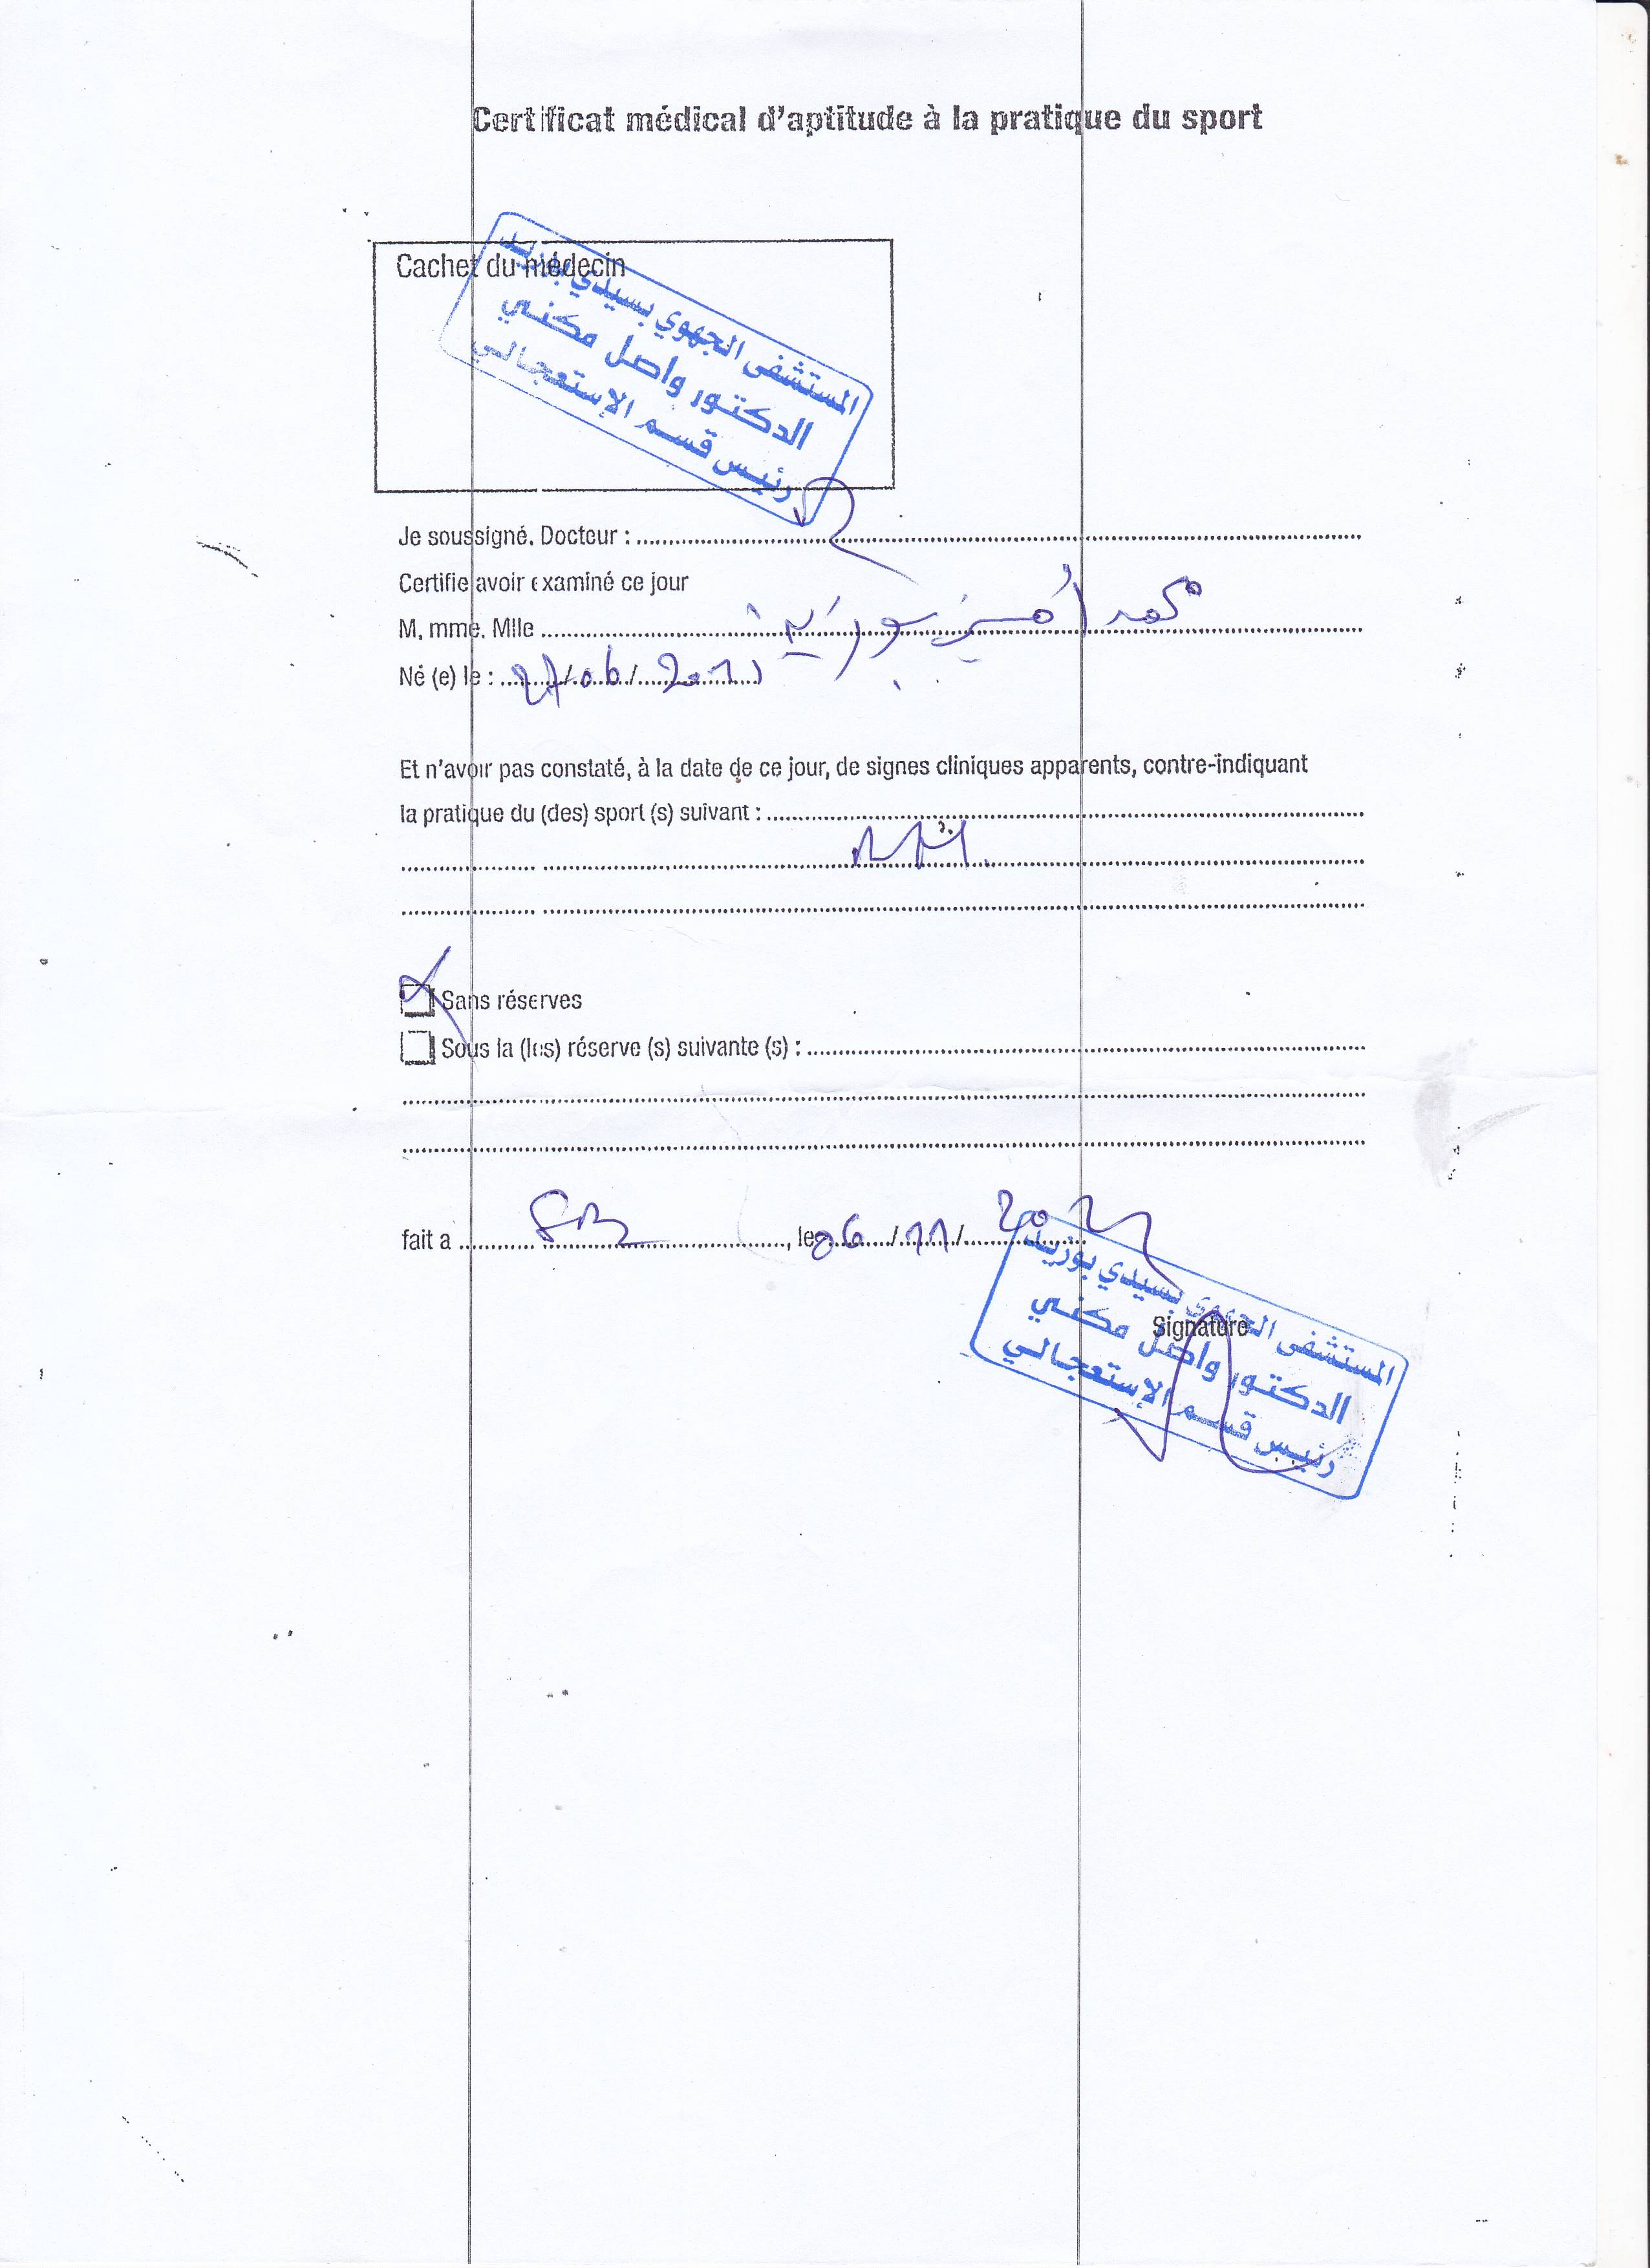 Certificat médical d'aptitude à la pratique du sport
Cachet du médecin
المستشفى الجهوي بسيدي بوزيد
الدكتور واصل مكني
رئيس قسم الإستعجالي
Je soussigné. Docteur :
Certifie avoir examiné ce jour
M, mme. Mlle محمد
Né (e) le : / 06 /
Et n'avoir pas constaté, à la date de ce jour, de signes cliniques apparents, contre-indiquant
la pratique du (des) sport (s) suivant :
Sans réserves
Sous la (les) réserve (s) suivante (s) :
fait a SBZ, le 06 / 11 /
Signature
المستشفى الجهوي بسيدي بوزيد
الدكتور واصل مكني
رئيس قسم الإستعجالي